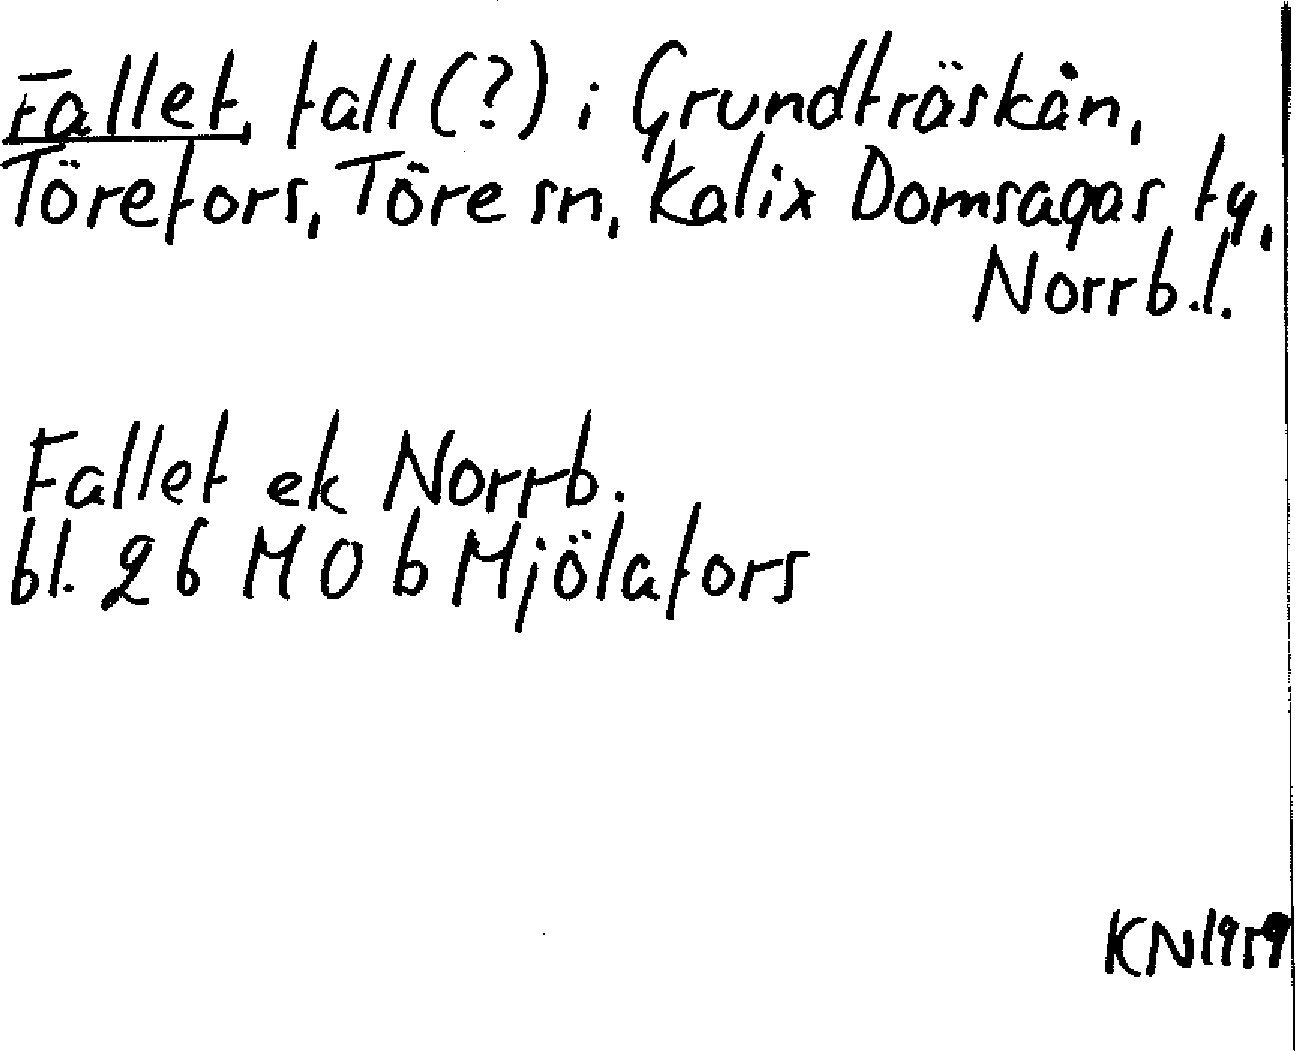 Fallet, fall (?) i Grundträskån,
Törefors, Töre sn, Kalix Domsagas tg,
Norrb.l.
Fallet ek Norrb.
bl. 26 M O b Mjölafors
KN 1959